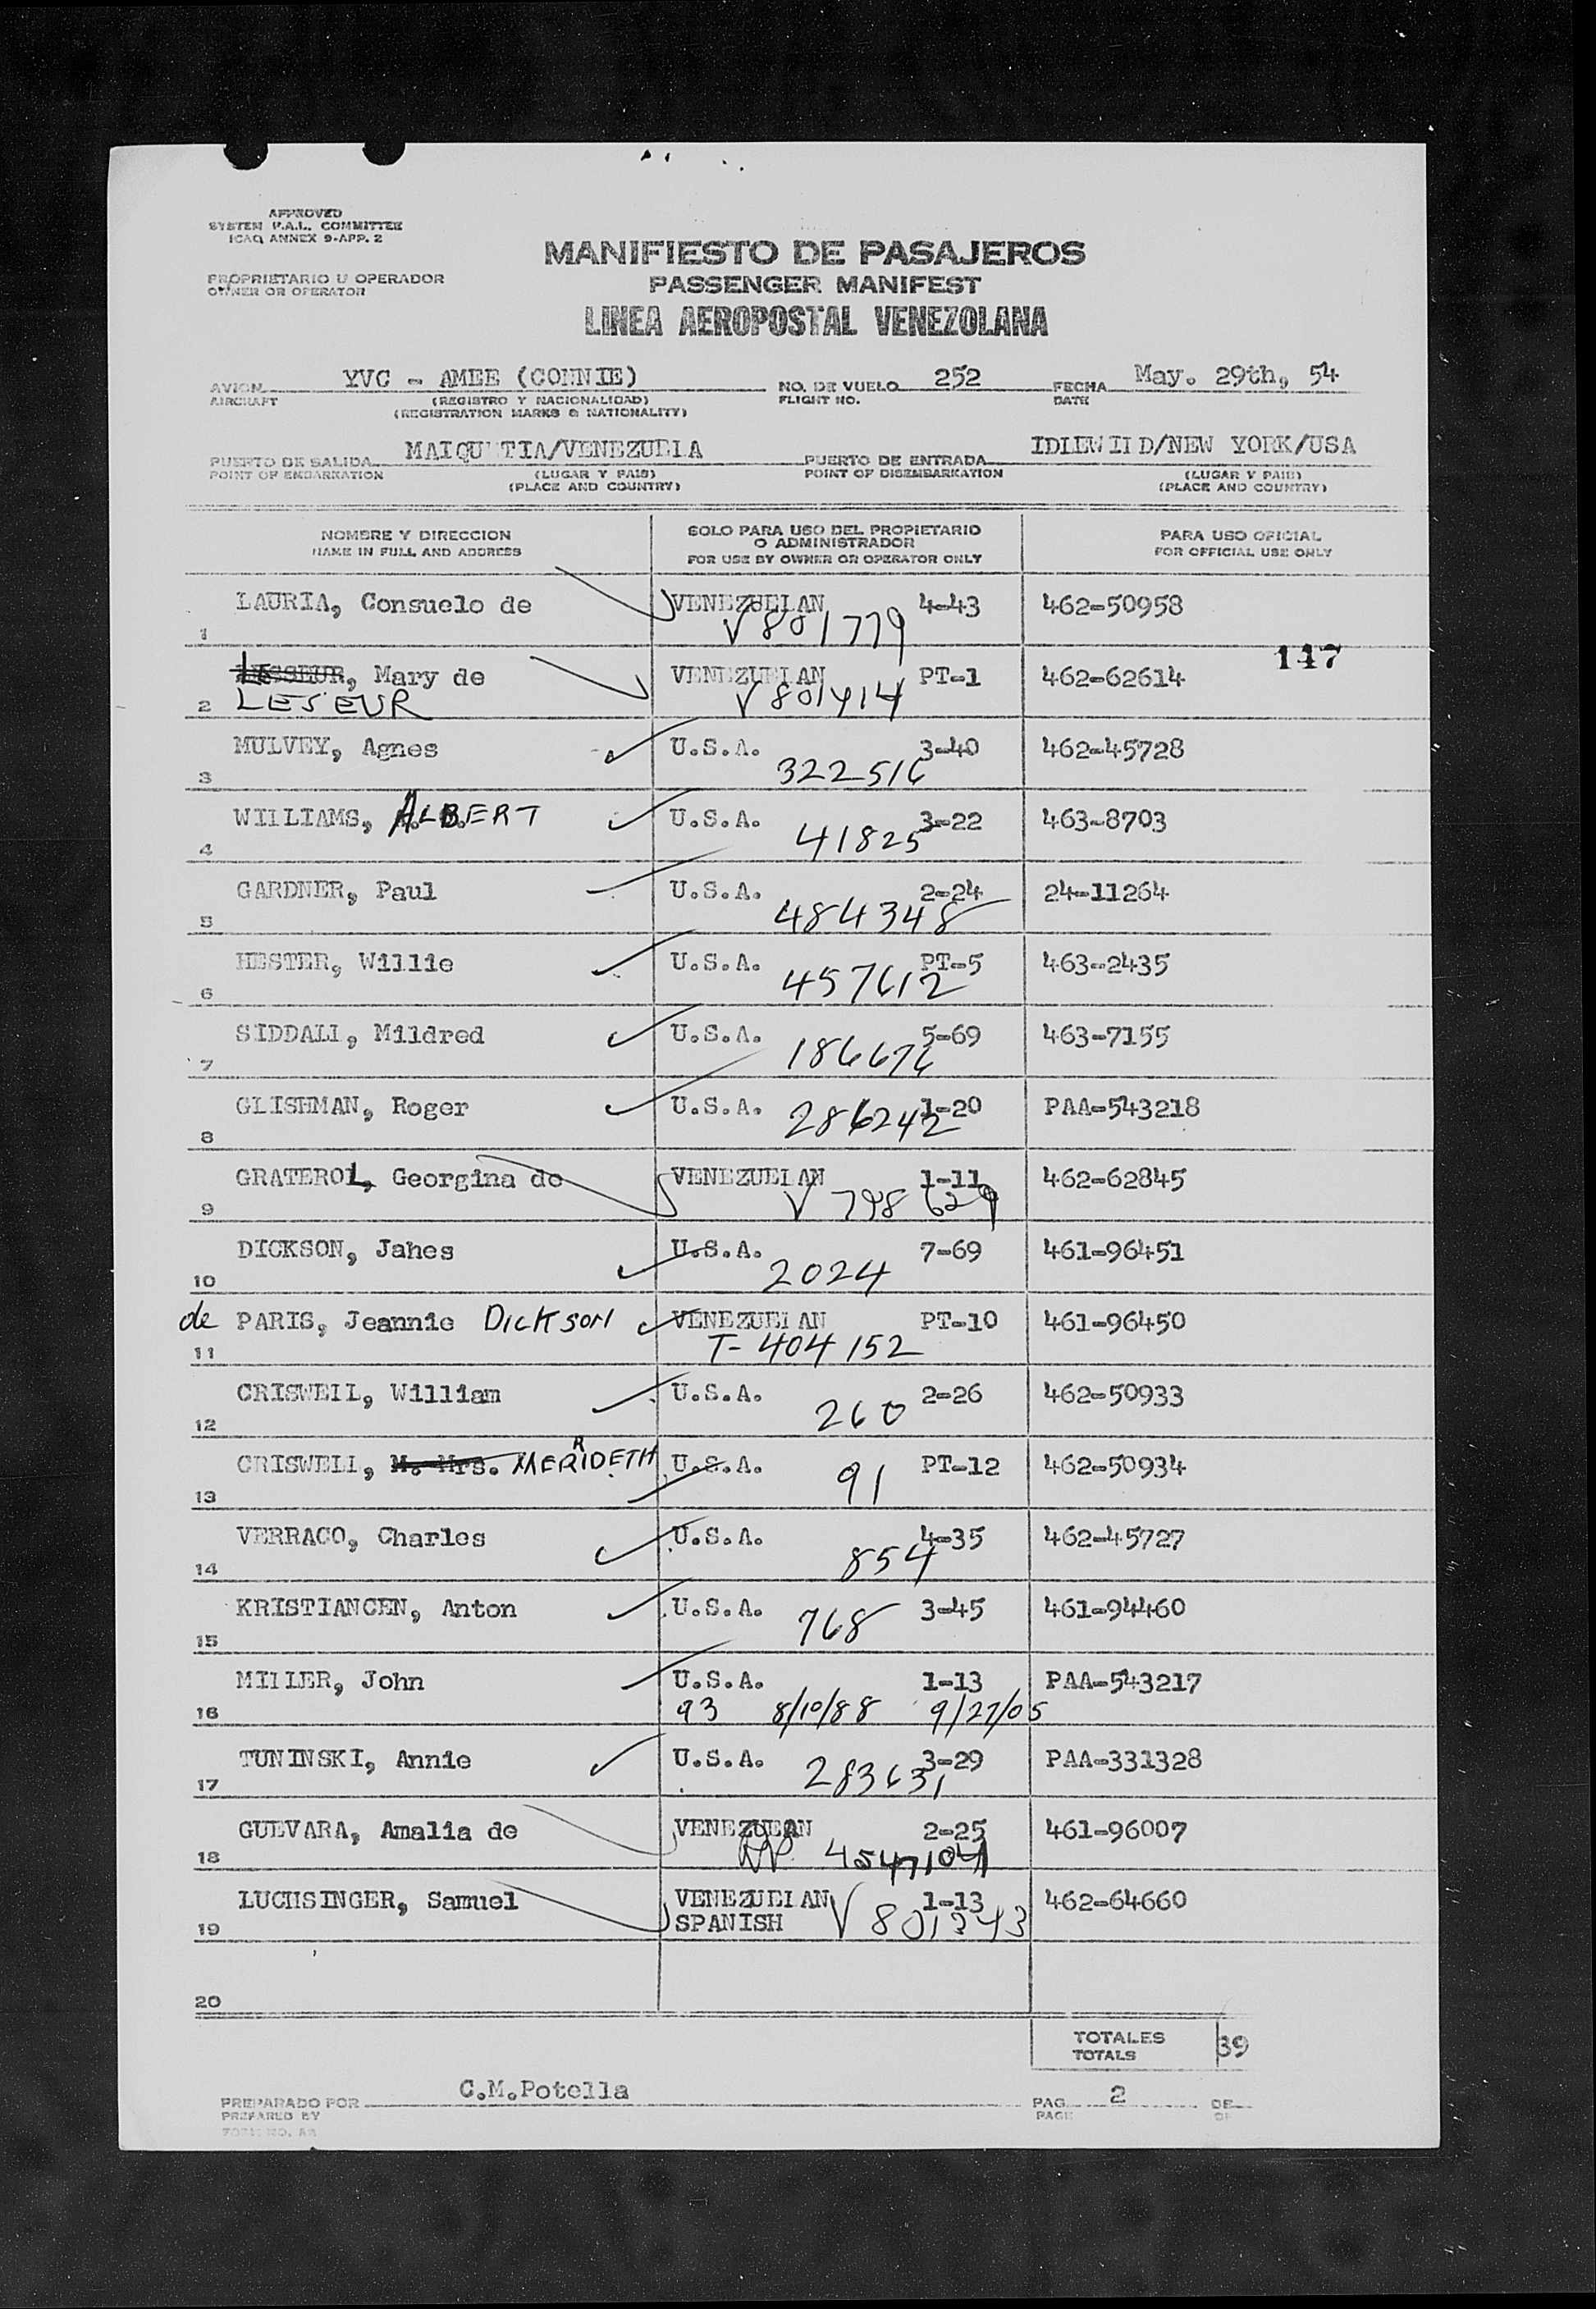 APPROVED
SYSTEM P.A.L. COMMITTEE
ICAO ANNEX 9-APP. 2
MANIFIESTO DE PASAJEROS
PROPRIETARIO U OPERADOR
OWNER OR OPERATOR
PASSENGER MANIFEST
LINEA AEROPOSTAL VENEZOLANA
AVION YVC - AMEE (CONNIE) NO. DE VUELO 252 FECHA May. 29th, 54
AIRCRAFT (REGISTRO Y NACIONALIDAD) FLIGHT NO. DATE
(REGISTRATION MARKS & NATIONALITY)
PUERTO DE SALIDA MAIQU TIA/VENEZUELA PUERTO DE ENTRADA IDLEWIID/NEW YORK/USA
POINT OF EMBARKATION (LUGAR Y PAIS) POINT OF DISEMBARKATION (LUGAR Y PAIS)
(PLACE AND COUNTRY) (PLACE AND COUNTRY)
NOMBRE Y DIRECCION SOLO PARA USO DEL PROPIETARIO O ADMINISTRADOR PARA USO OFICIAL
NAME IN FULL AND ADDRESS FOR USE BY OWNER OR OPERATOR ONLY FOR OFFICIAL USE ONLY
LAURIA, Consuelo de VENEZUELAN 4-43 462-50958
1 V 801779
147
LESSEUR, Mary de VENEZUELAN PT-1 462-62614
2 LESEUR V 801414
MULVEY, Agnes U.S.A. 3-40 462-45728
3 322516
WILLIAMS, ALBERT U.S.A. 3-22 463-8703
4 41825
GARDNER, Paul U.S.A. 2-24 24-11264
5 484348
HESTER, Willie U.S.A. PT-5 463-2435
6 457612
SIDDALL, Mildred U.S.A. 5-69 463-7155
7 186676
GLISHMAN, Roger U.S.A. 1-20 PAA-543218
8 286242
GRATEROL, Georgina de VENEZUELAN 1-11 462-62845
9 V 798629
DICKSON, Jahes U.S.A. 7-69 461-96451
10 2024
de PARIS, Jeannie DICKSON VENEZUELAN PT-10 461-96450
11 T-404152
CRISWELL, William U.S.A. 2-26 462-50933
12 260
CRISWELL, M. Mrs. MERRIDETH U.S.A. PT-12 462-50934
13 91
VERRACO, Charles U.S.A. 4-35 462-45727
14 854
KRISTIANCEN, Anton U.S.A. 3-45 461-94460
15 768
MILLER, John U.S.A. 1-13 PAA-543217
16 93 8/10/88 9/27/05
TUNINSKI, Annie U.S.A. 3-29 PAA-331328
17 283631
GUEVARA, Amalia de VENEZUEAN 2-25 461-96007
18
LUCHSINGER, Samuel VENEZUELAN 1-13 462-64660
19 SPANISH V 801343
20
TOTALES 39
TOTALS
PREPARADO POR C.M.Potella PAG. 2 DE
PREPARED BY PAGE OF